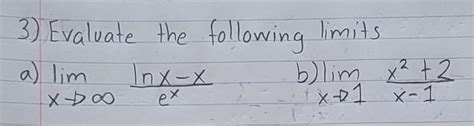 3) Evaluate the following limits
a) lim x→∞ (ln x - x)/(e^x) b) lim x→1 (x² + 2)/(x - 1)